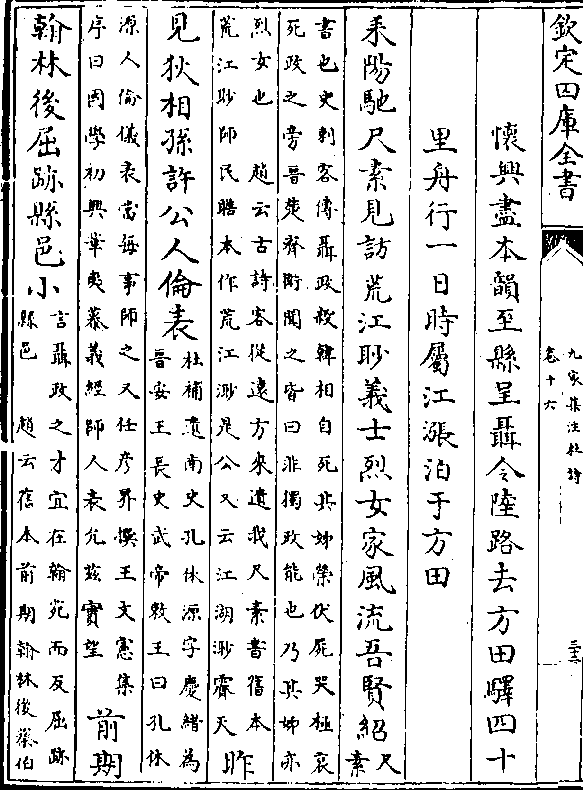 欽定四庫全書
九家集注杜詩
卷十六
懷興盡本韻至縣呈聶令陸路去方田驛四十
里舟行一日時屬江漲泊于方田
耒陽馳尺素見訪荒江眇義士烈女家風流吾賢紹
尺
素
書也史刺客傳聶政殺韓相自死其姊榮伏屍哭極哀
死政之旁晉楚齊衛聞之皆曰非獨政能也乃其姊亦
烈女也 趙云古詩客從遠方來遺我尺素書舊本
荒江眇師民瞻本作荒江渺是公又云江湖渺霽天
昨
見狄相孫許公人倫表
杜補遺南史孔休源字慶緒為
晉安王長史武帝敕王曰孔休
源人倫儀表當每事師之又任彦昇撰王文憲集
序曰國學初興華夷慕義經師人表允兹實望
前期
翰林後屈跡縣邑小
言聶政之才宜在翰苑而反屈跡
縣邑 趙云舊本前期翰林後蔡伯